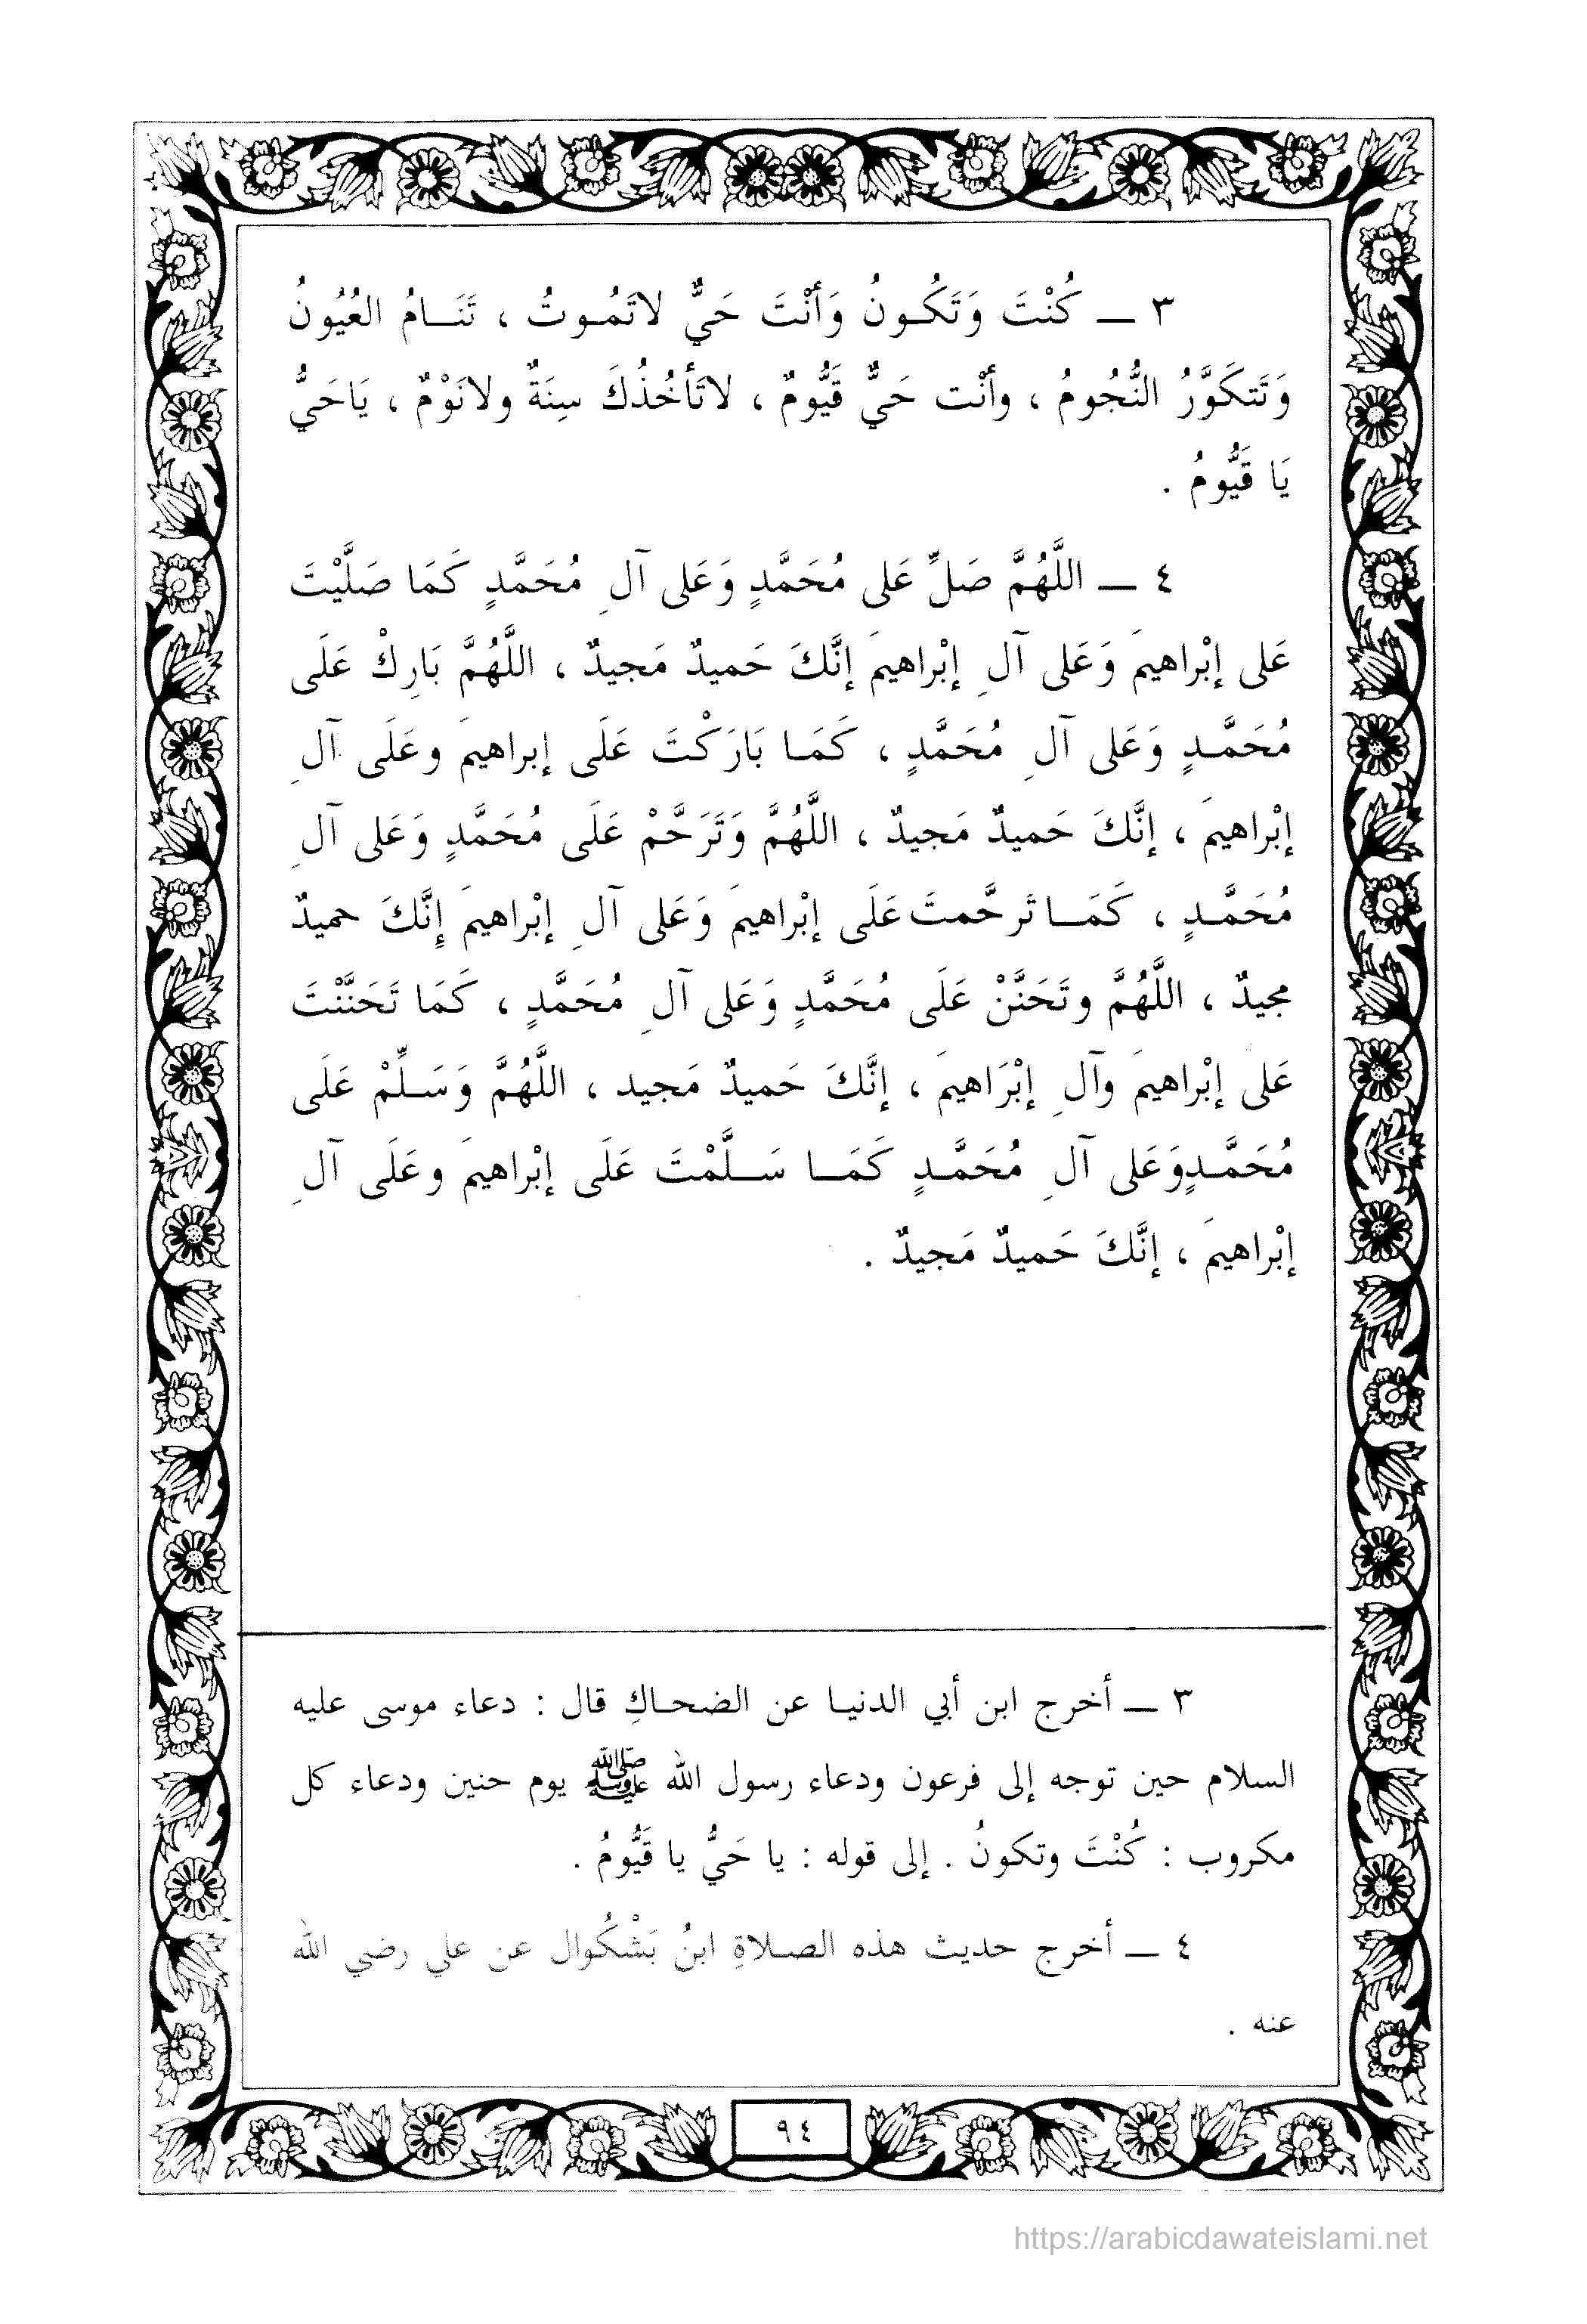 ٣ ـ كُنْتَ وَتَكُونُ وَأَنْتَ حَيٌّ لاتَمُوتُ ، تَنَامُ العُيُونُ
وَتَتكَوَّرُ النُّجُومُ ، وأنْت حَيٌّ قَيُّومٌ ، لاتَأخُذُكَ سِنَةٌ ولانَوْمٌ ، يَاحَيُّ
يَا قَيُّومُ .
٤ ـ اللَّهُمَّ صَلِّ عَلى مُحَمَّدٍ وَعَلى آلِ مُحَمَّدٍ كَمَا صَلَّيْتَ
عَلى إبْراهيمَ وَعَلى آلِ إبْراهيمَ إنَّكَ حَميدٌ مَجيدٌ ، اللَّهُمَّ بَارِكْ عَلَى
مُحَمَّدٍ وَعَلى آلِ مُحَمَّدٍ ، كَمَا بَارَكْتَ عَلَى إبراهيمَ وعَلَى آلِ
إبْراهيمَ ، إنَّكَ حَميدٌ مَجيدٌ ، اللَّهُمَّ وَتَرَحَّمْ عَلَى مُحَمَّدٍ وَعَلى آلِ
مُحَمَّدٍ ، كَمَا تَرحَّمتَ عَلَى إبْراهيمَ وَعَلى آلِ إبْراهيمَ إِنَّكَ حميدٌ
مجيدٌ ، اللَّهُمَّ وتَحَنَّنْ عَلَى مُحَمَّدٍ وَعَلى آلِ مُحَمَّدٍ ، كَمَا تَحَنَّنْتَ
عَلى إبْراهيمَ وآلِ إبْرَاهيمَ ، إنَّكَ حَميدٌ مَجيد ، اللَّهُمَّ وَسَلِّمْ عَلَى
مُحَمَّدٍوَعَلى آلِ مُحَمَّدٍ كَمَا سَلَّمْتَ عَلَى إبْراهيمَ وعَلَى آلِ
إبْراهيمَ ، إنَّكَ حَميدٌ مَجيدٌ .
٣ ـ أخرج ابن أبي الدنيا عن الضحاكِ قال : دعاء موسى عليه
السلام حين توجه إلى فرعون ودعاء رسول الله ﷺ يوم حنين ودعاء كل
مكروب : كُنْتَ وتكونُ . إلى قوله : يا حَيُّ يا قَيُّومُ .
٤ ـ أخرج حديث هذه الصلاةِ ابنُ بَشْكُوال عن علي رضي الله
عنه .
٩٤
https://arabicdawateislami.net